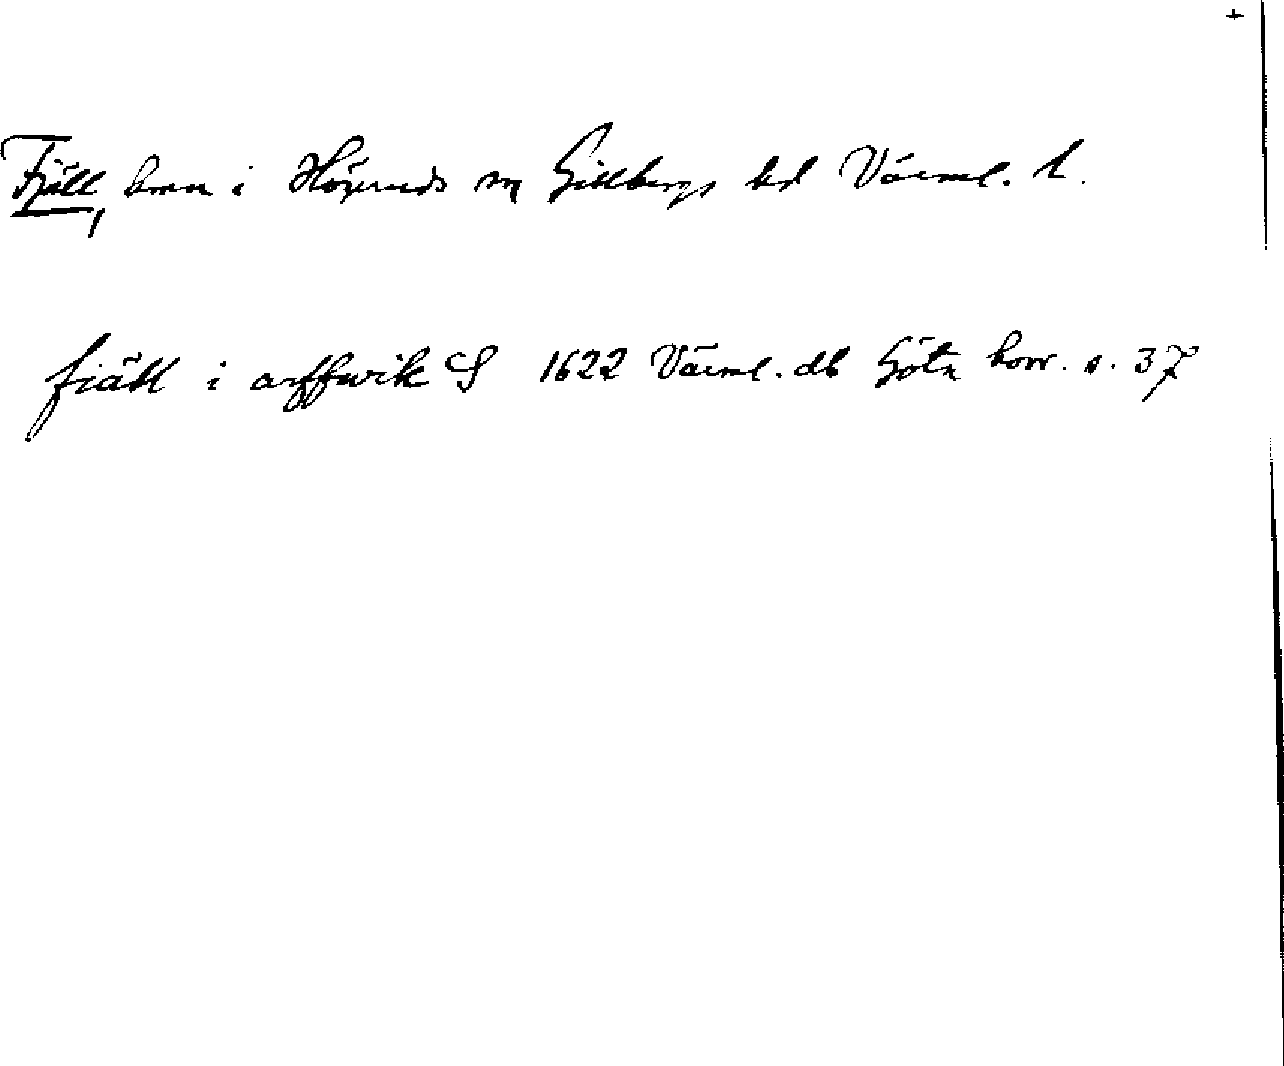 +
Fjäll, hmn i Högeruds sn Gillbergs hd Värml. l.
fiäll i arffwik S 1622 Värml. db Göta hovr. s. 37